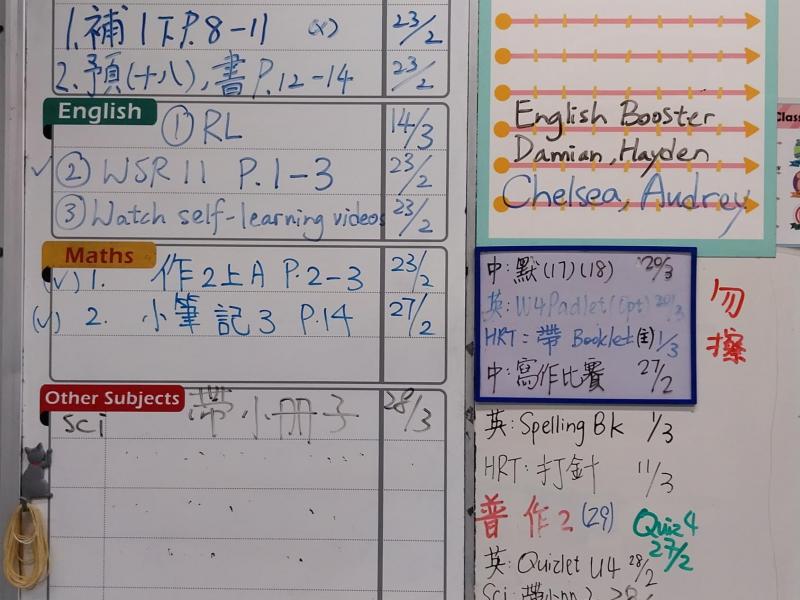 1. 補1下P.8-11 (x) 23/2
2. 預(十八), 書P.12-14 23/2
English
① RL 14/3
✓ ② WSR 11 P.1-3 23/2
③ Watch self-learning videos 23/2
Maths
(✓) 1. 作2上A P.2-3 23/2
(✓) 2. 小筆記3 P.14 27/2
Other Subjects
sci 帶小册子 28/3
English Booster
Damian, Hayden
Chelsea, Audrey
Class
中: 默(17)(18) 29/3
英: W4 Padlet (opt) 20/3
HRT: 帶 Booklet 1/3
中: 寫作比賽 27/2
勿
擦
英: Spelling Bk 1/3
HRT: 打針 11/3
普 作2 (29) Quiz 4
27/2
英: Quizlet U4 28/2
Sci: 帶小